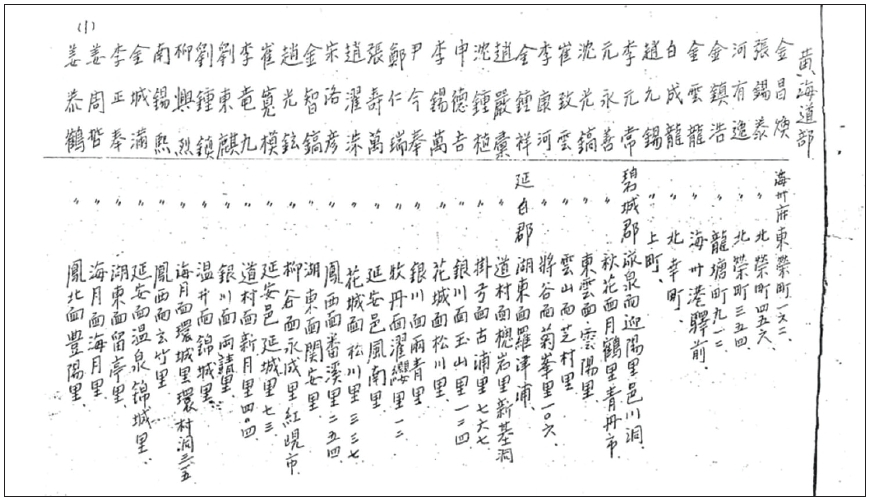 黃海道部
金昌煥 海州府東榮町一六二
張錫泰 〃 北榮町四五六
河有逸 〃 北榮町三五四
金鎮浩 〃 龍塘町九一二
金雲龍 〃 海州港驛前
白成龍 〃 北幸町、
趙元錫 〃 上町、
李元常 碧城郡泳泉面迎陽里邑川洞
元永善 〃 秋花面月鶴里青丹市
沈光鎬 〃 東雲面雲陽里
崔致雲 〃 雲山面芝村里
李康河 〃 將谷面菊峯里一〇六
金鍾祥 延白郡湖東面羅津浦
趙嚴藁 〃 道村面檍岩里新基洞
沈鍾植 〃 掛弓面古浦里七六七
申德吉 〃 銀川面玉山里一二四
李錫萬 〃 花城面松川里
尹今奉 〃 銀川面雨青里
鄭仁瑞 〃 牧丹面濯纓里一二
張壽萬 〃 延安邑鳳南里
趙濯洙 〃 花城面松川里三三七
宋洛彦 〃 鳳西面番溪里二五四
金智鎬 〃 湖東面関安里
趙光鉉 〃 柳谷面永成里紅峴市
崔寬模 〃 延安邑延城里七三
李竜九 〃 道村面新月里四〇四
劉東麒 〃 銀川面雨請里
劉鍾鎖 〃 温井面錦城里
柳興烈 〃 海月面環城里環村洞三一五
南錫熙 〃 鳳西面玄竹里
金城滿 〃 延安面温泉錦城里
李正奉 〃 湖東面留亭里
姜周楷 〃 海月面海月里
姜泰鶴 〃 鳳北面豊陽里
(1)